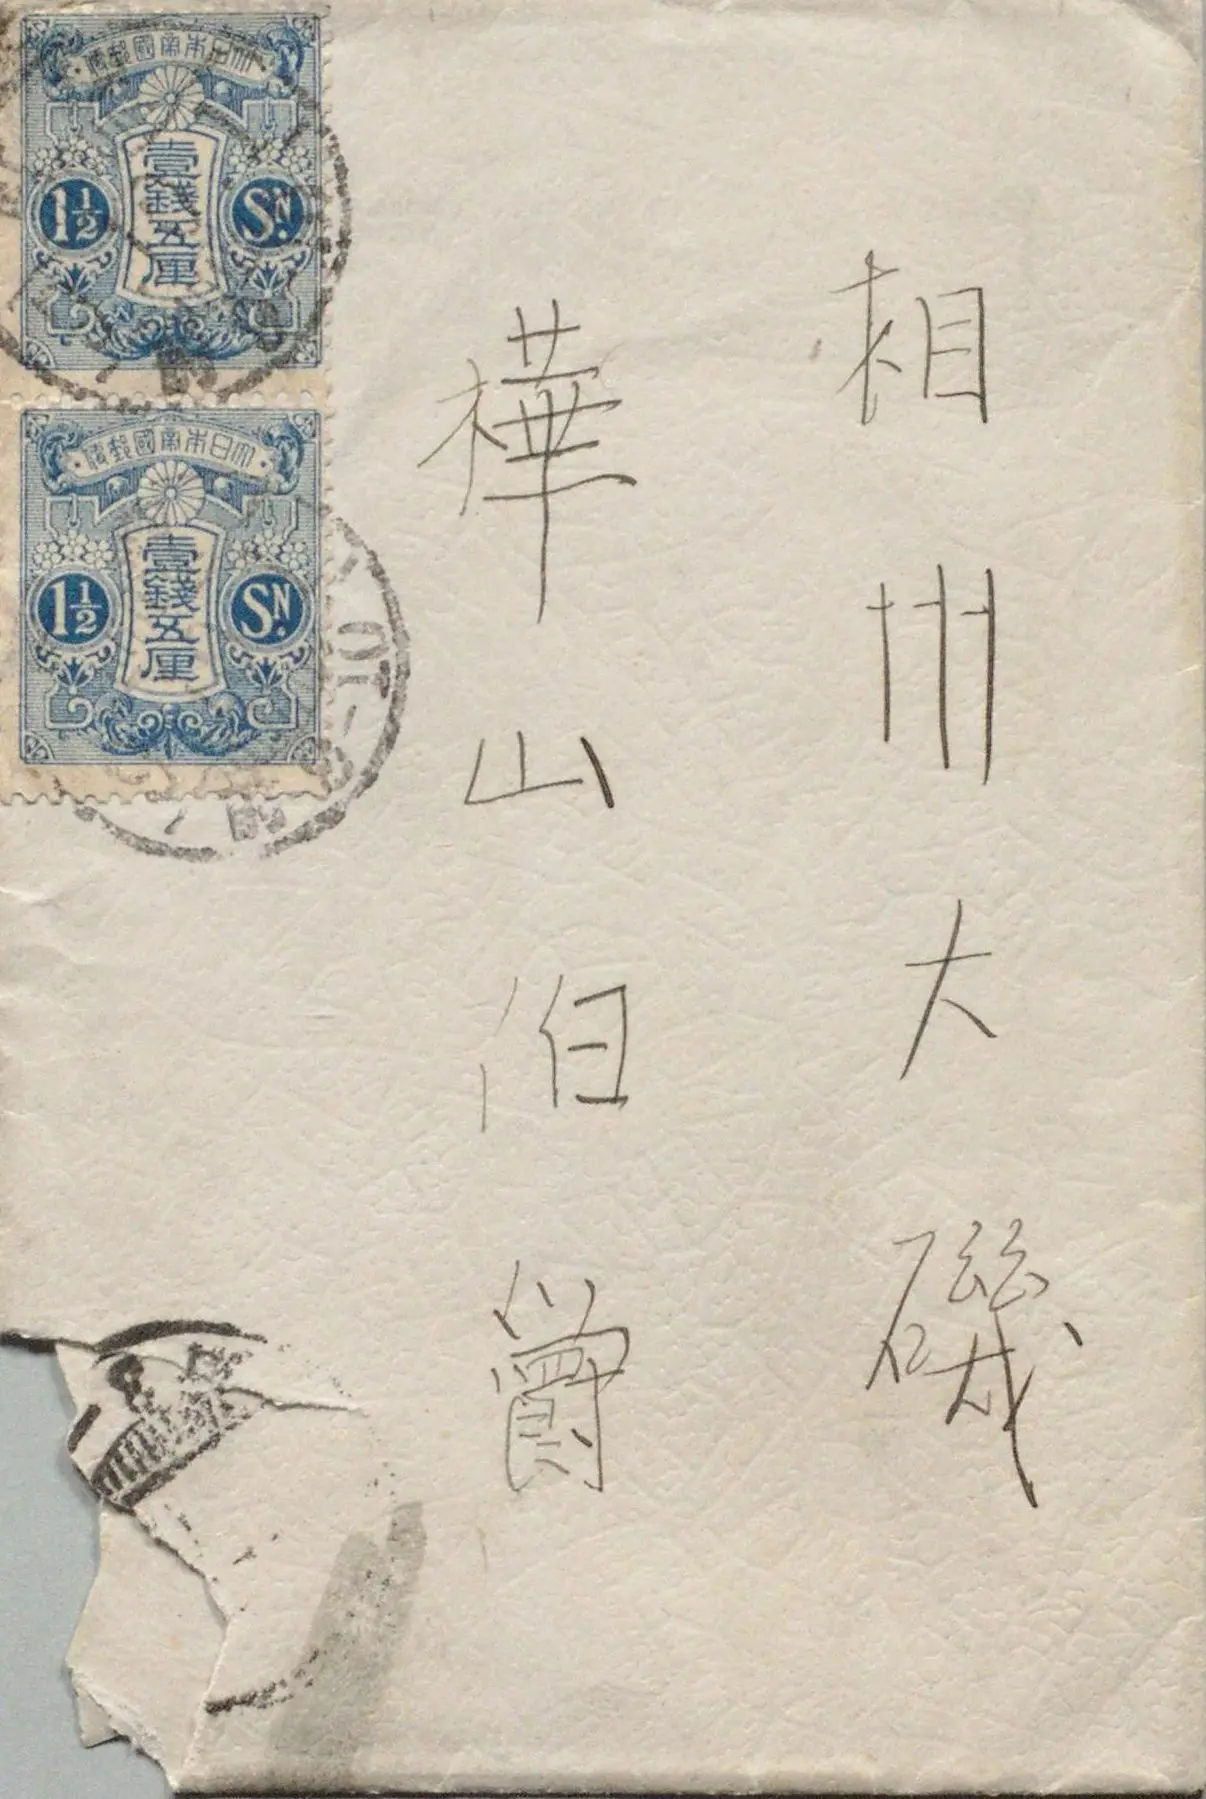 相州大磯
樺山伯爵
大日本帝國郵便
壹錢五厘
1½ SN.
大日本帝國郵便
壹錢五厘
1½ SN.